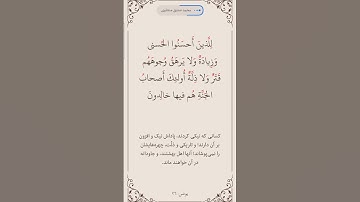 لِلَّذِينَ أَحسَنُوا الحُسنى
وَزِيادَةٌ وَلا يَرهَقُ وُجوهَهُم
قَتَرٌ وَلا ذِلَّةٌ أُولٰئِكَ أَصحابُ
الجَنَّةِ هُم فيها خالِدونَ
کسانی که نیکی کردند، پاداش نیک و افزون
بر آن دارند؛ و تاریکی و ذلّت، چهره‌هایشان
را نمی‌پوشاند؛ آنها اهل بهشتند، و جاودانه
در آن خواهند ماند.
یونس ۲۶